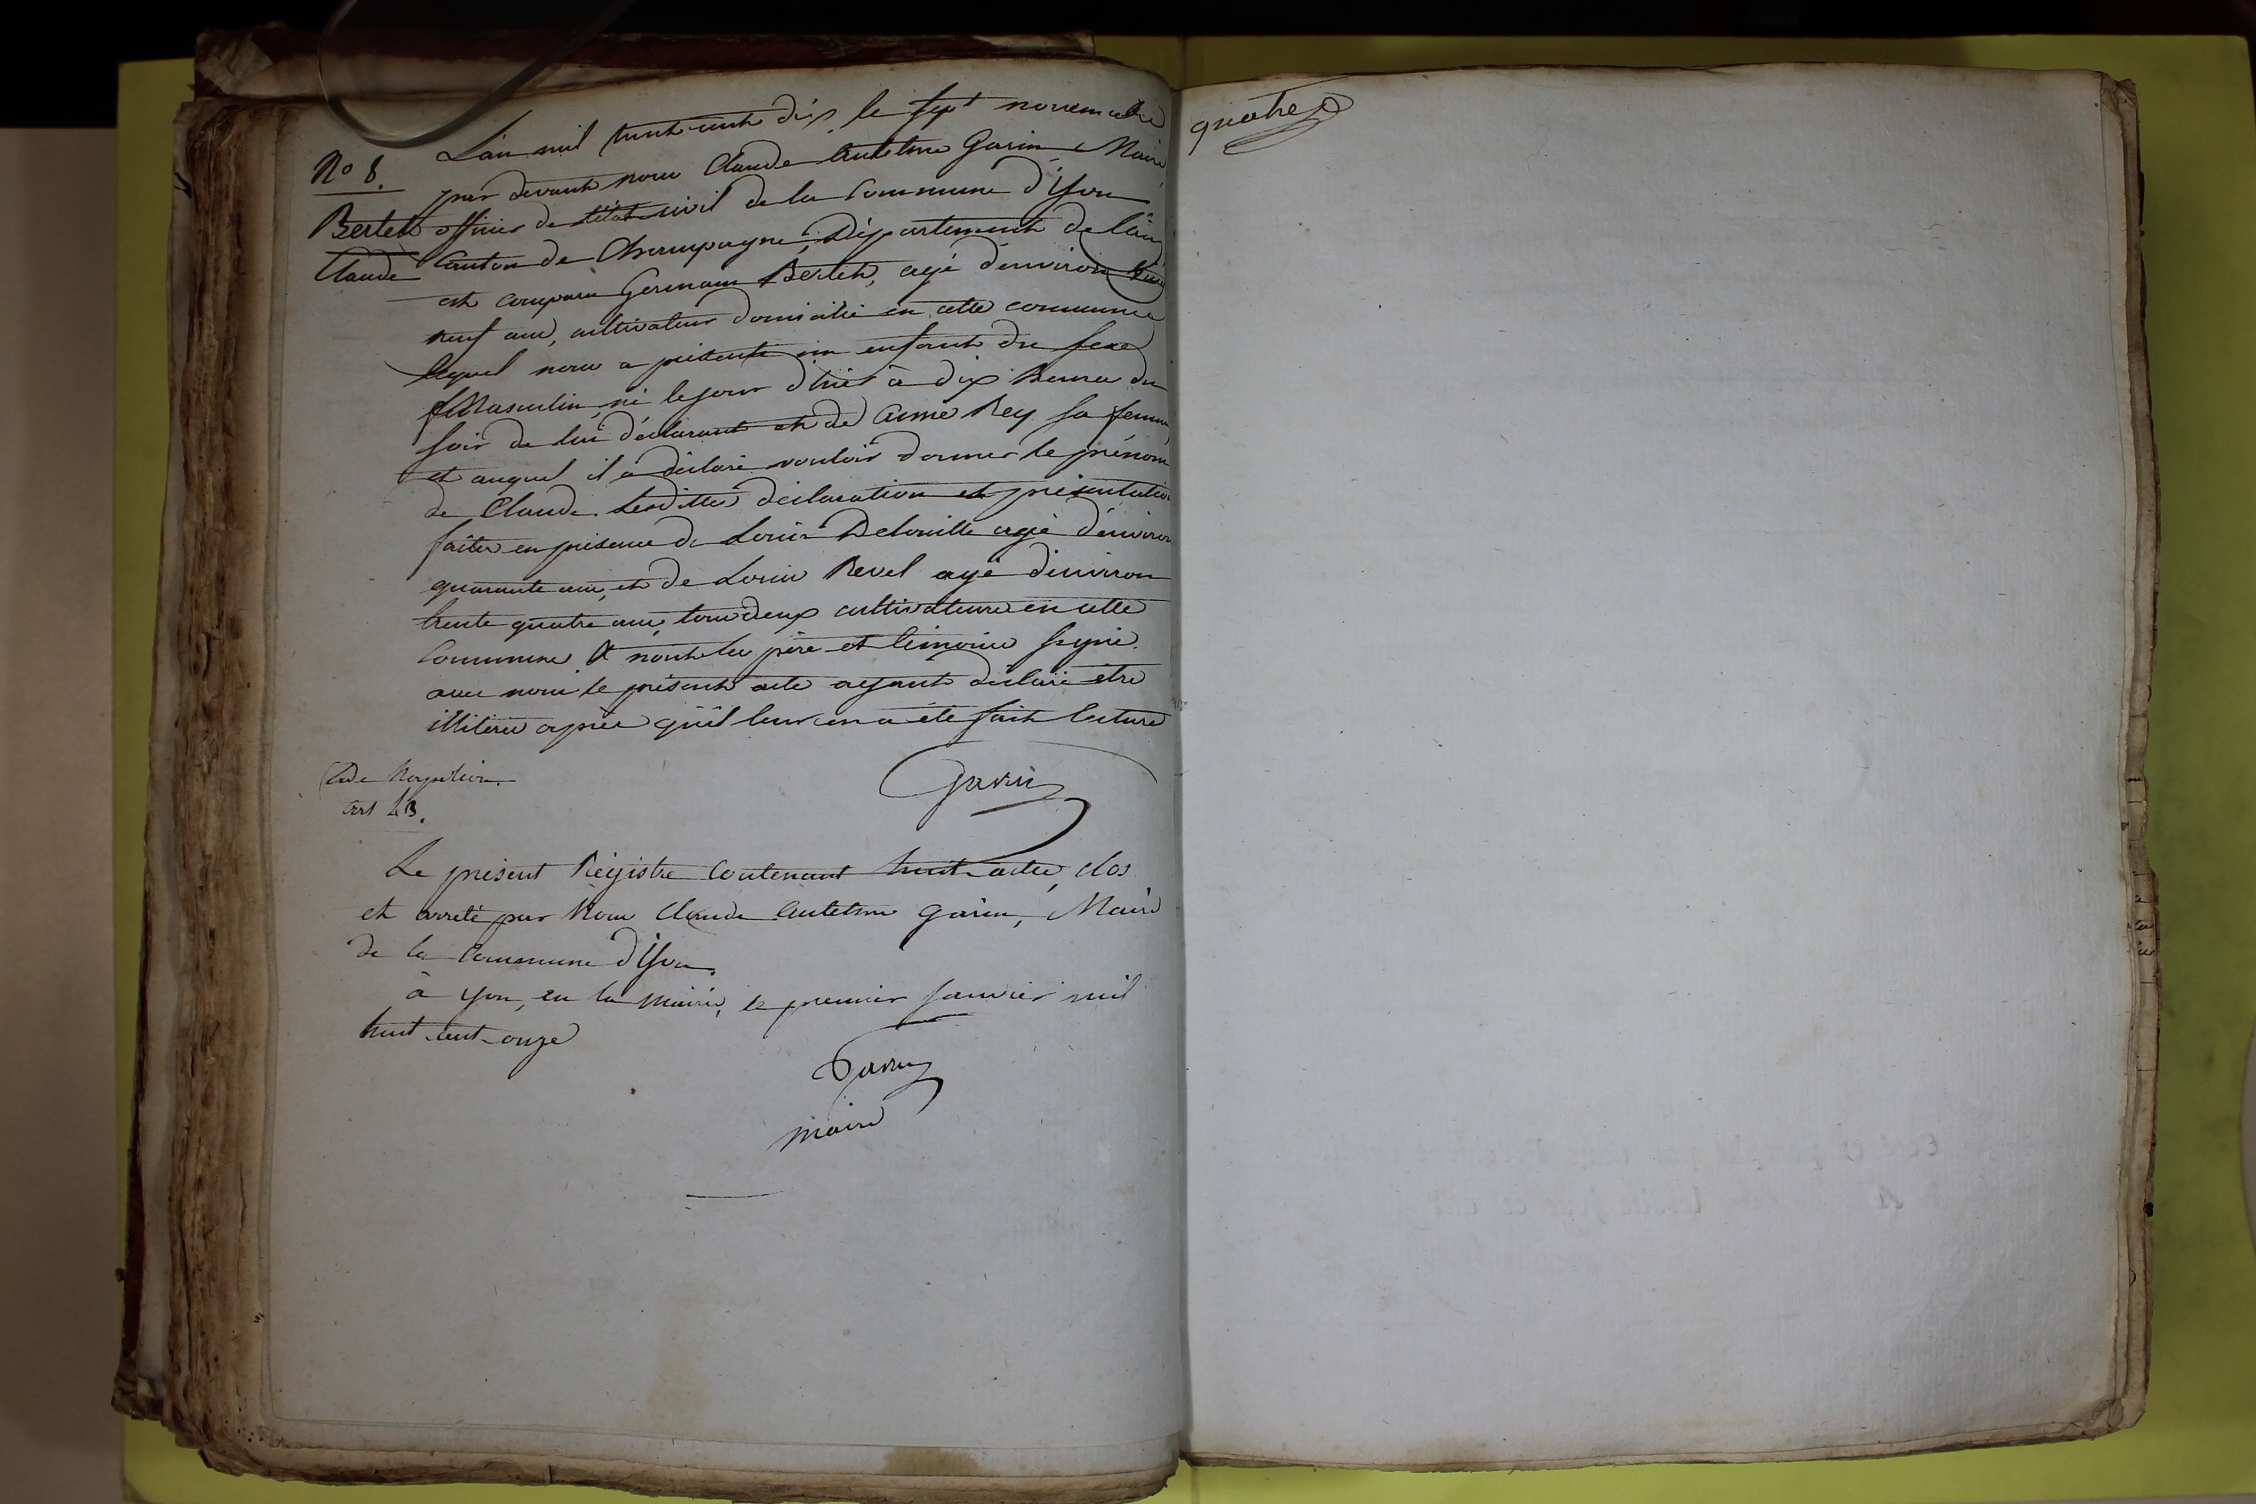 N° 8.
Bertet
Claude
L'an mil huit cent dix, le sept novembre
par devant nous Claude Antelme Garin Maire
officier de l'état civil de la Commune d'Yon
Canton de Champagne, Département de l'ain
est comparu Germain Bertet, agé d'environ
neuf ans, cultivateur domicilié en cette commune
lequel nous a présenté un enfant du sexe
Masculin, né le jour d'hier à dix heures du
soir de lui déclarant et de Aimé Rey sa femme,
et auquel il a déclaré vouloir donner le prénom
de Claude. Lesdittes déclaration et présentation
faites en présence de Louis agé d'environ
quarante ans, et de Louis Revel agé d'environ
trente quatre ans, tous deux cultivateurs en cette
Commune & n'ont les père et témoins signé
avec nous le présent acte ayant déclaré etre
illiterés après qu'il leur en a été fait lecture
Garin
Code Napoléon.
art
Le présent Régistre Contenant huit actes, clos
et arreté par Nous Claude Antelme garin, Maire
de la Commune d'Yon.
à yon, en la mairie, le premier Janvier mil
huit-cent-onze
Garin
maire
quatre